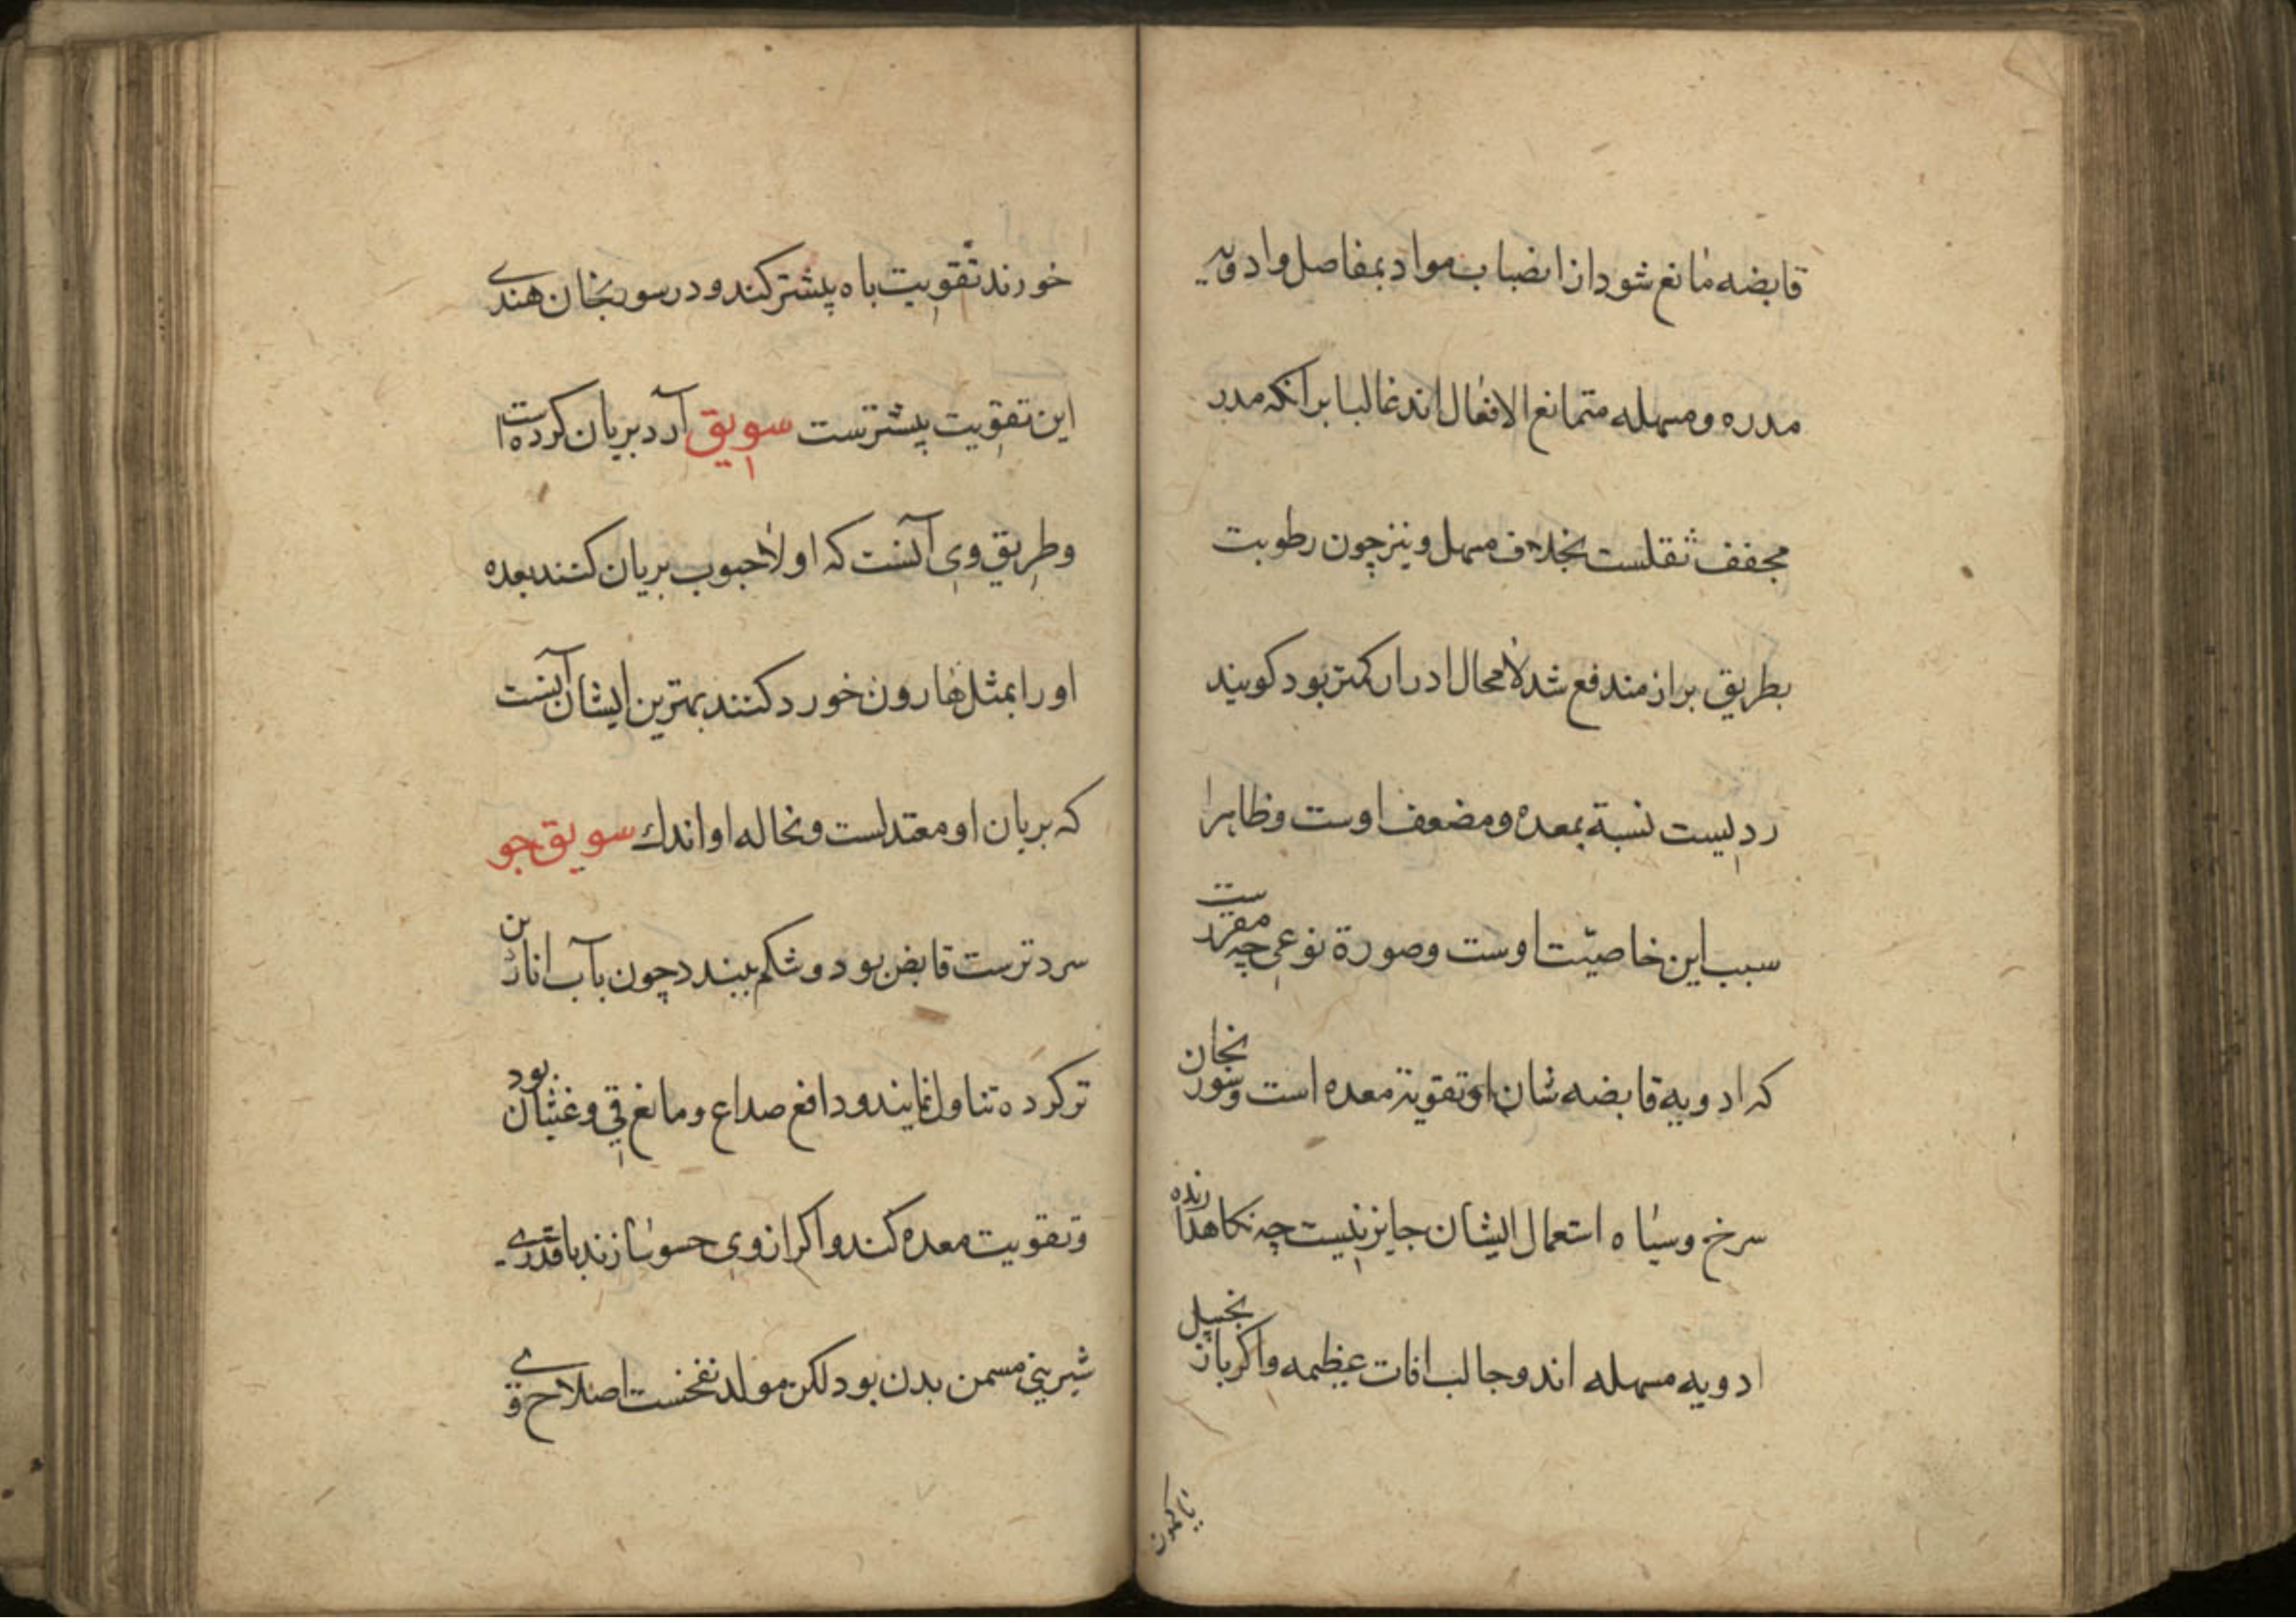 قابضه مانع شود از انصباب مواد بمفاصل و ادویه
مدره و مسهله متمانع الافعال اند غالبا برانکه مدر
مجفف ثقلست بخلاف مسهل و نیز چون رطوبت
بطریق براز مندفع شد لا محال ادرار کمتر بود کویند
ردیست نسبة بمعده و مضعف اوست و ظاهرا
سبب این خاصیت اوست و صورة نوعی چه مقررست
که ادویه قابضه شان او تقویة معده است و سورنجان
سرخ و سیاه استعمال ایشان جایز نیست چه نکاهدارنده
ادویه مسهله اند و جالب افات عظیمه و اکر بازنجبیل
خورند تقویت باه پیشتر کند و در سورنجان هندی
این تقویت پیشترست سویق آرد بریان کرده است
و طریق وی آنست که اولا حبوب بریان کنند بعده
او را بمثل هارون خورد کنند بهترین ایشان آنست
که بریان او معتدلست و نخاله او اندك سویق جو
سردترست قابض بود و شکم ببندد چون بآب انارین
تر کرده تناول نمایند و دافع صداع و مانع قی و غثیان بود
و تقویت معده کند و اکر از وی حسو سازند با قدری
شیرینی مسمن بدن بود لکن مولد نفخست اصلاح وی